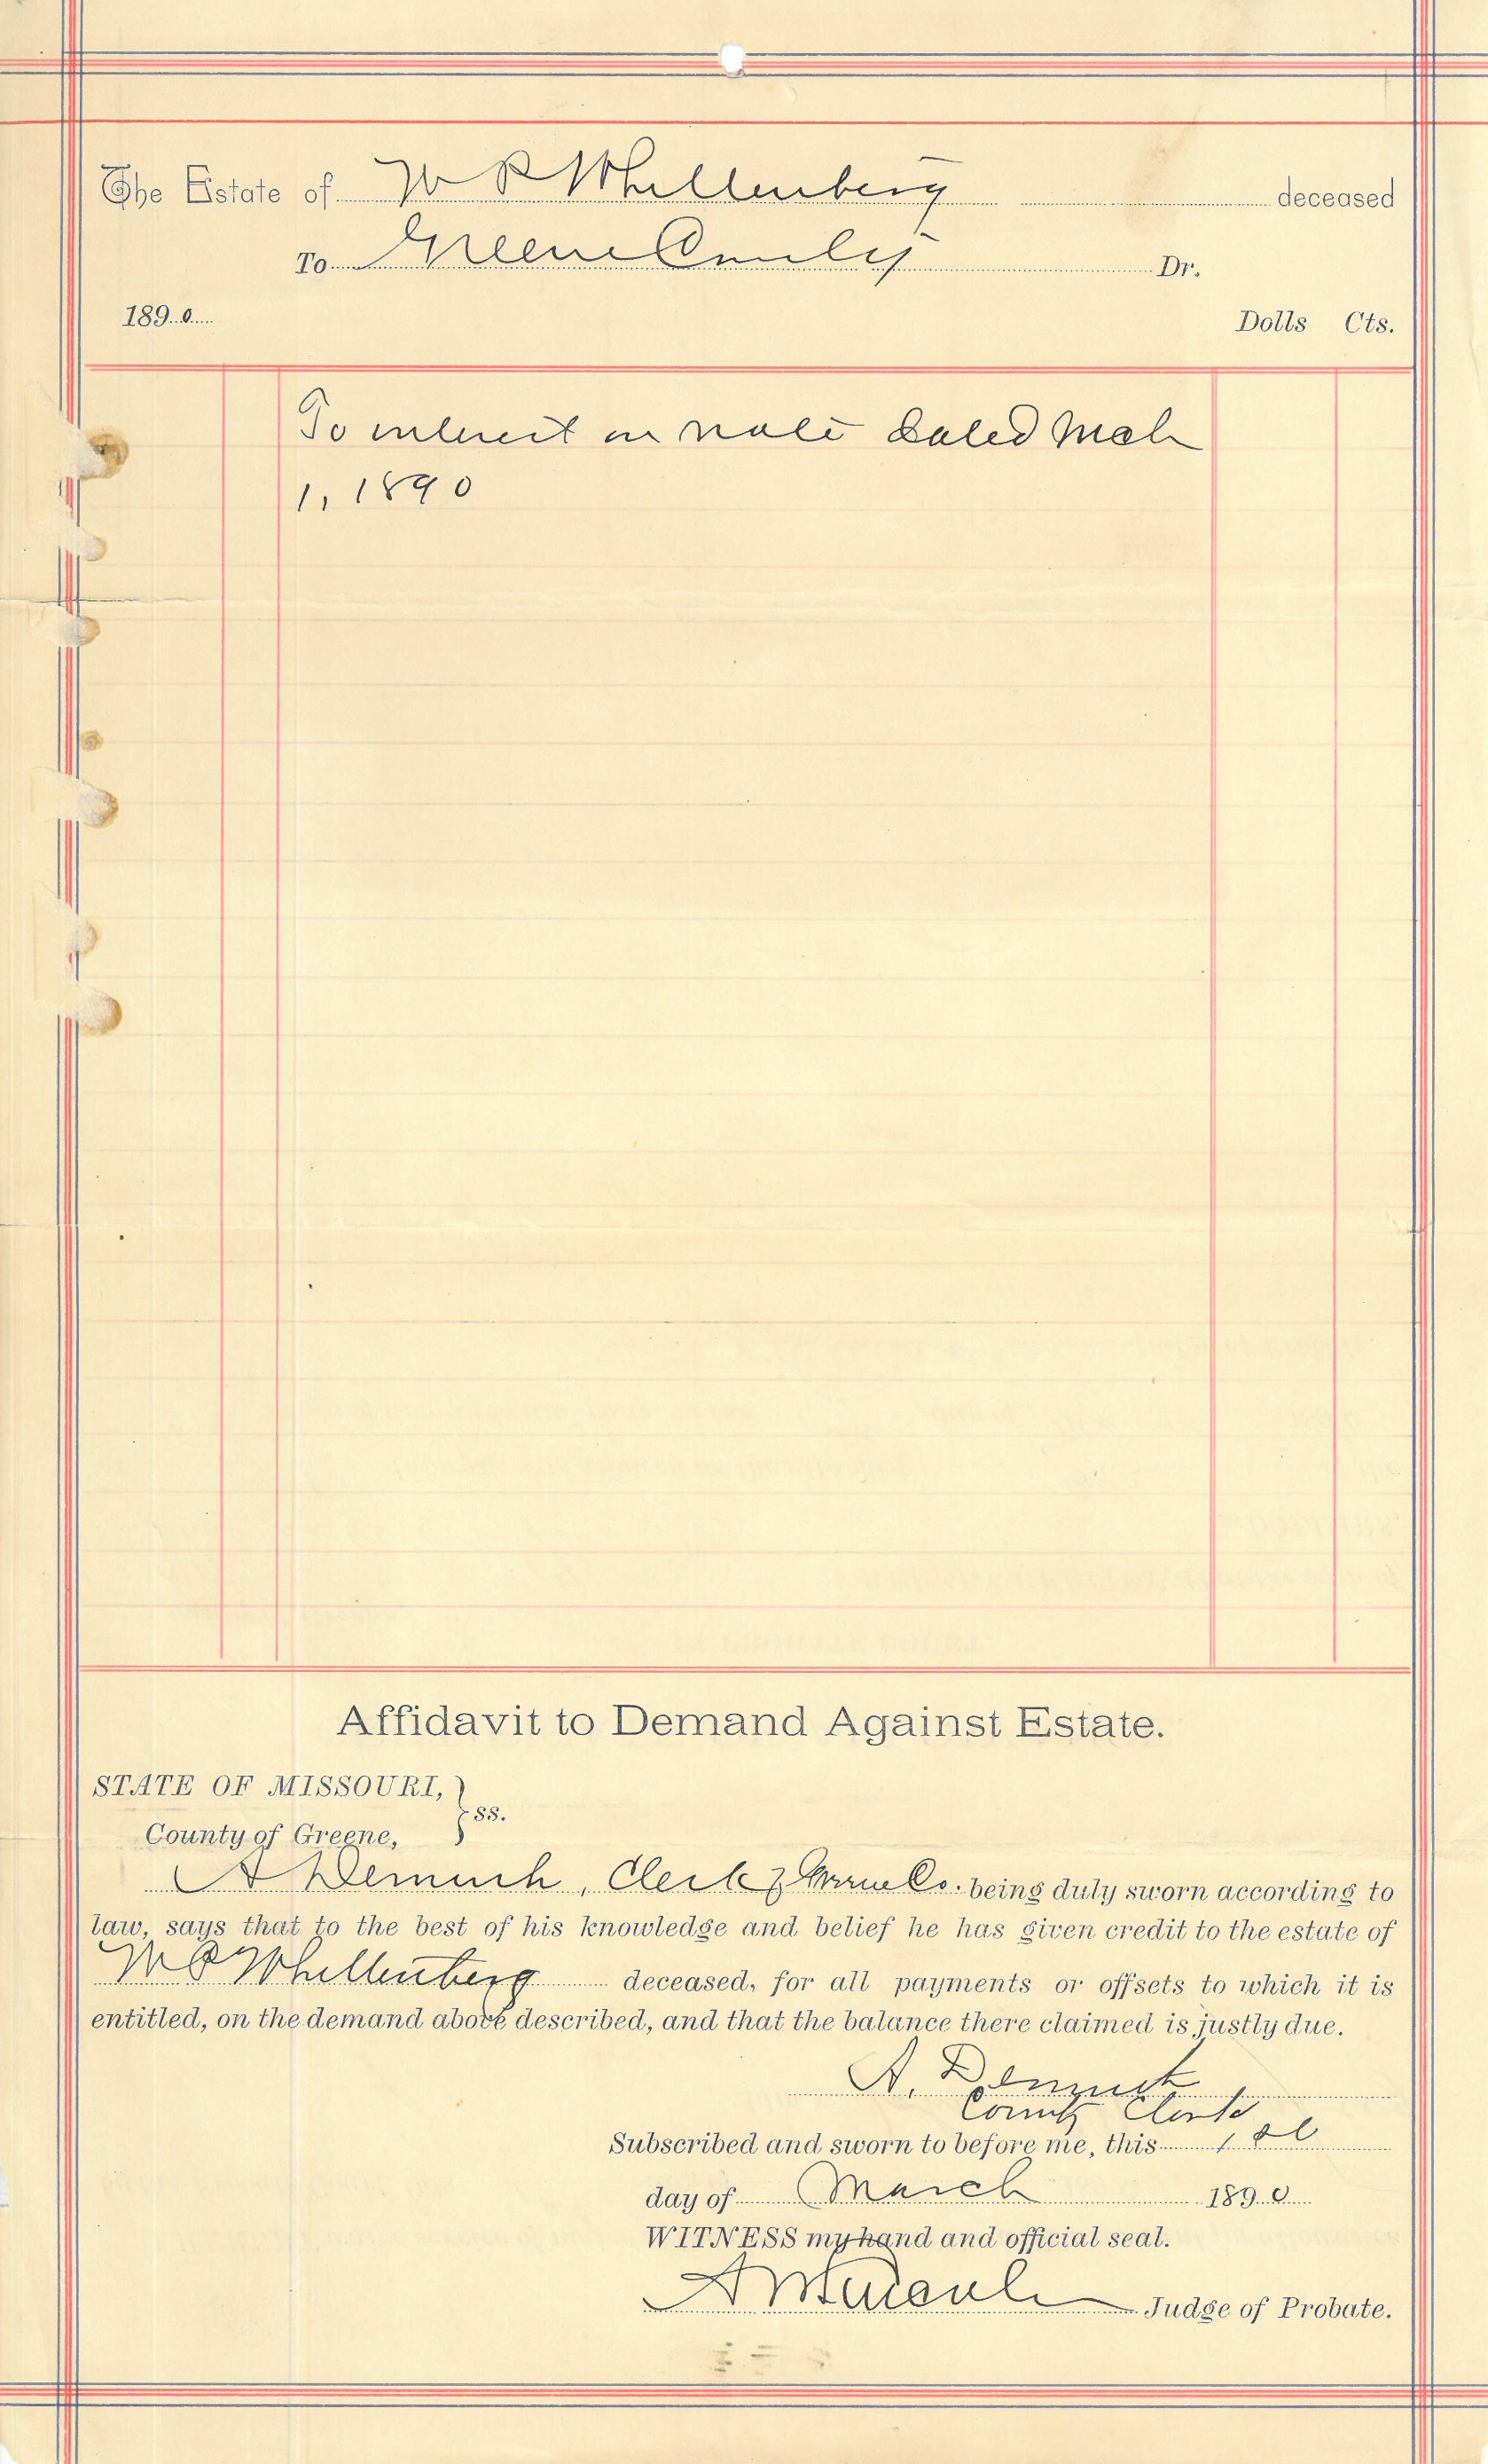 The Estate of W P Whellenberg deceased
To Greene County Dr.
1890
Dolls Cts.
To interest on note dated Mch
1, 1890
Affidavit to Demand Against Estate.
STATE OF MISSOURI,
ss.
County of Greene,
A Demuth, Clerk of Greene Co. being duly sworn according to
law, says that to the best of his knowledge and belief he has given credit to the estate of
W P Whellenberg deceased, for all payments or offsets to which it is
entitled, on the demand above described, and that the balance there claimed is justly due.
A. Demuth
County Clerk
Subscribed and sworn to before me, this 1st
day of March 1890
WITNESS my hand and official seal.
Judge of Probate.